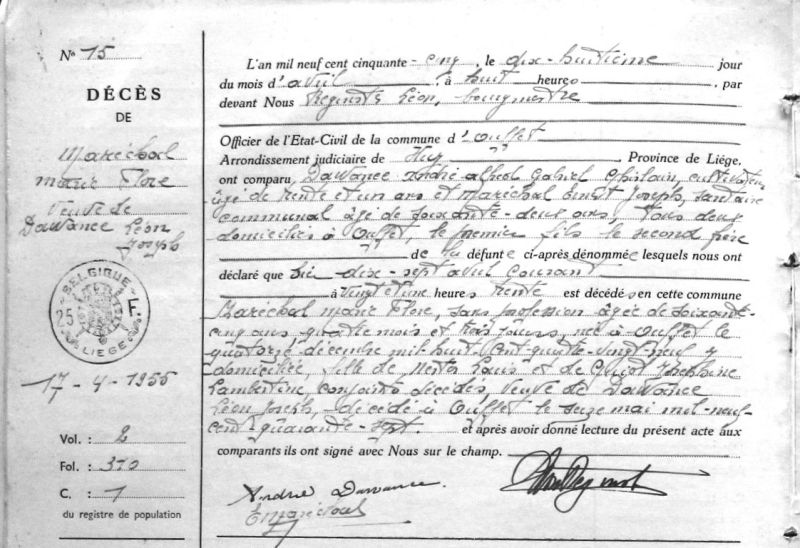 N° 15
DÉCÈS
DE
Maréchal
Marie Flore
Veuve de
Dawance Léon
Joseph
BELGIQUE
25 F.
LIEGE
17-4-1955
Vol. : 2
Fol. : 310
C. : 1
du registre de population
L'an mil neuf cent cinquante-cinq, le dix-huitième jour
du mois d'avril, à huit heures, par
devant Nous Léon, bourgmestre
Officier de l'Etat-Civil de la commune d'Ouffet
Arrondissement judiciaire de Huy, Province de Liége,
ont comparu Dawance André Alfred Gabriel Ghislain, cultivateur
âgé de trente et un ans et Maréchal Ernest Joseph, cantonnier
communal âgé de soixante-deux ans. Tous deux
domiciliés à Ouffet, le premier fils le second frère
de la défunte ci-après dénommée lesquels nous ont
déclaré que hier dix-sept avril courant
à vingt et une heures trente est décédée en cette commune
Maréchal Marie Flore, sans profession âgée de soixante-
cinq ans quatre mois et trois jours, née à Ouffet le
quatorze décembre mil huit cent quatre-vingt-neuf y
domiciliée, fille de Louis et de Joséphine
Lambertine, conjoints décédés, veuve de Dawance
Léon Joseph, décédé à Ouffet le seize mai mil-neuf-
cent quarante-sept. et après avoir donné lecture du présent acte aux
comparants ils ont signé avec Nous sur le champ.
André Dawance.
E Maréchal